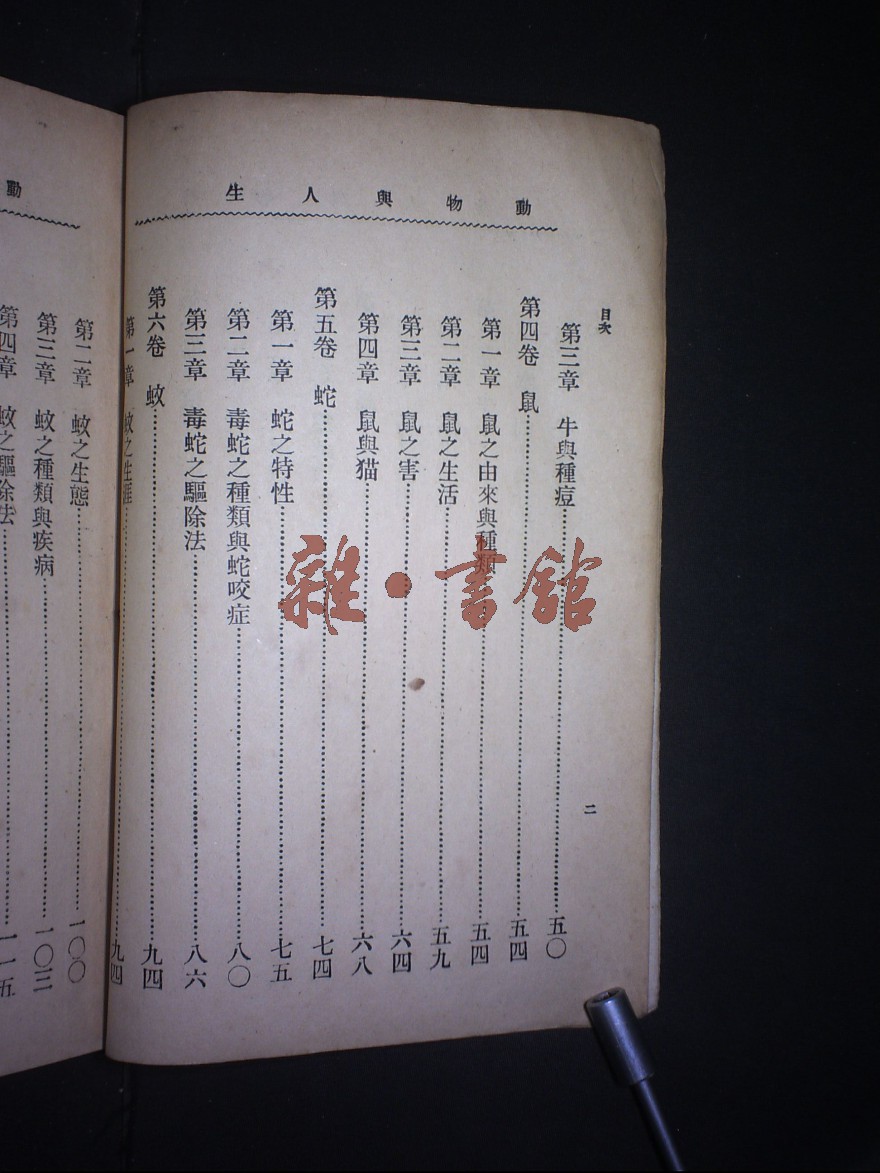 動物與人生
目次
第三章　牛與種痘……五〇
第四卷　鼠……五四
第一章　鼠之由來與種類……五四
第二章　鼠之生活……五九
第三章　鼠之害……六四
第四章　鼠與猫……六八
第五卷　蛇……七四
第一章　蛇之特性……七五
第二章　毒蛇之種類與蛇咬症……八〇
第三章　毒蛇之驅除法……八六
第六卷　蚊……九四
第一章　蚊之生涯……九四
二
動
第二章　蚊之生態……一〇〇
第三章　蚊之種類與疾病……一〇三
第四章　蚊之驅除法……一一五
雜·書館